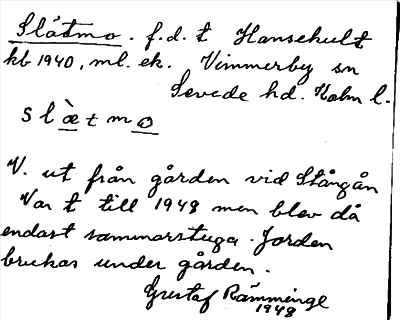 Slåtmo. f.d. t Hansekult
kb 1940, ml. ek. Vimmerby sn
Sevede hd. Kalm l.
slæ̀tmo
V. ut från gården vid Stångån
Var t till 1948 men blev då
endast sommarstuga. Jorden
brukas under gården.
Gustaf Ramminge
1948